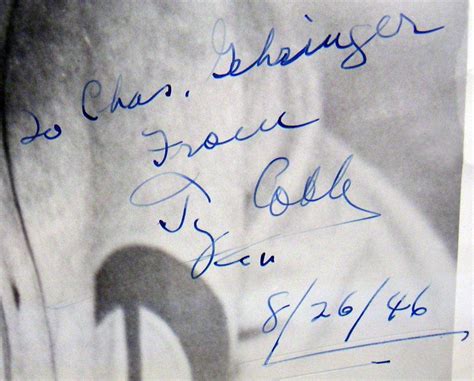 To Chas. Gehringer
From
Ty Cobb
8/26/46